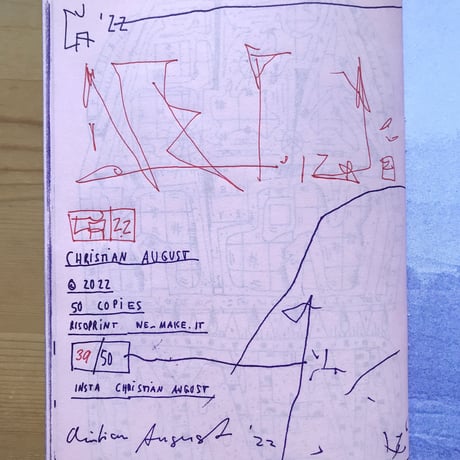 '22
22
CHRISTIAN AUGUST
© 2022
50 COPIES
RISOPRINT NE_MAKE.IT
39/50
INSTA CHRISTIAN AUGUST
Christian August '22